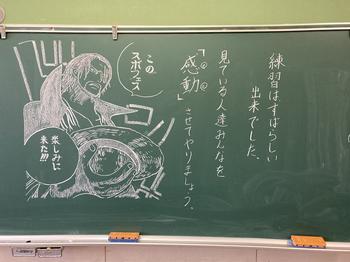 練習はすばらしい
出来でした。
見ている人達みんなを
「感動」させてやりましょう。
この
スポフェス
楽しみに
来た!!!